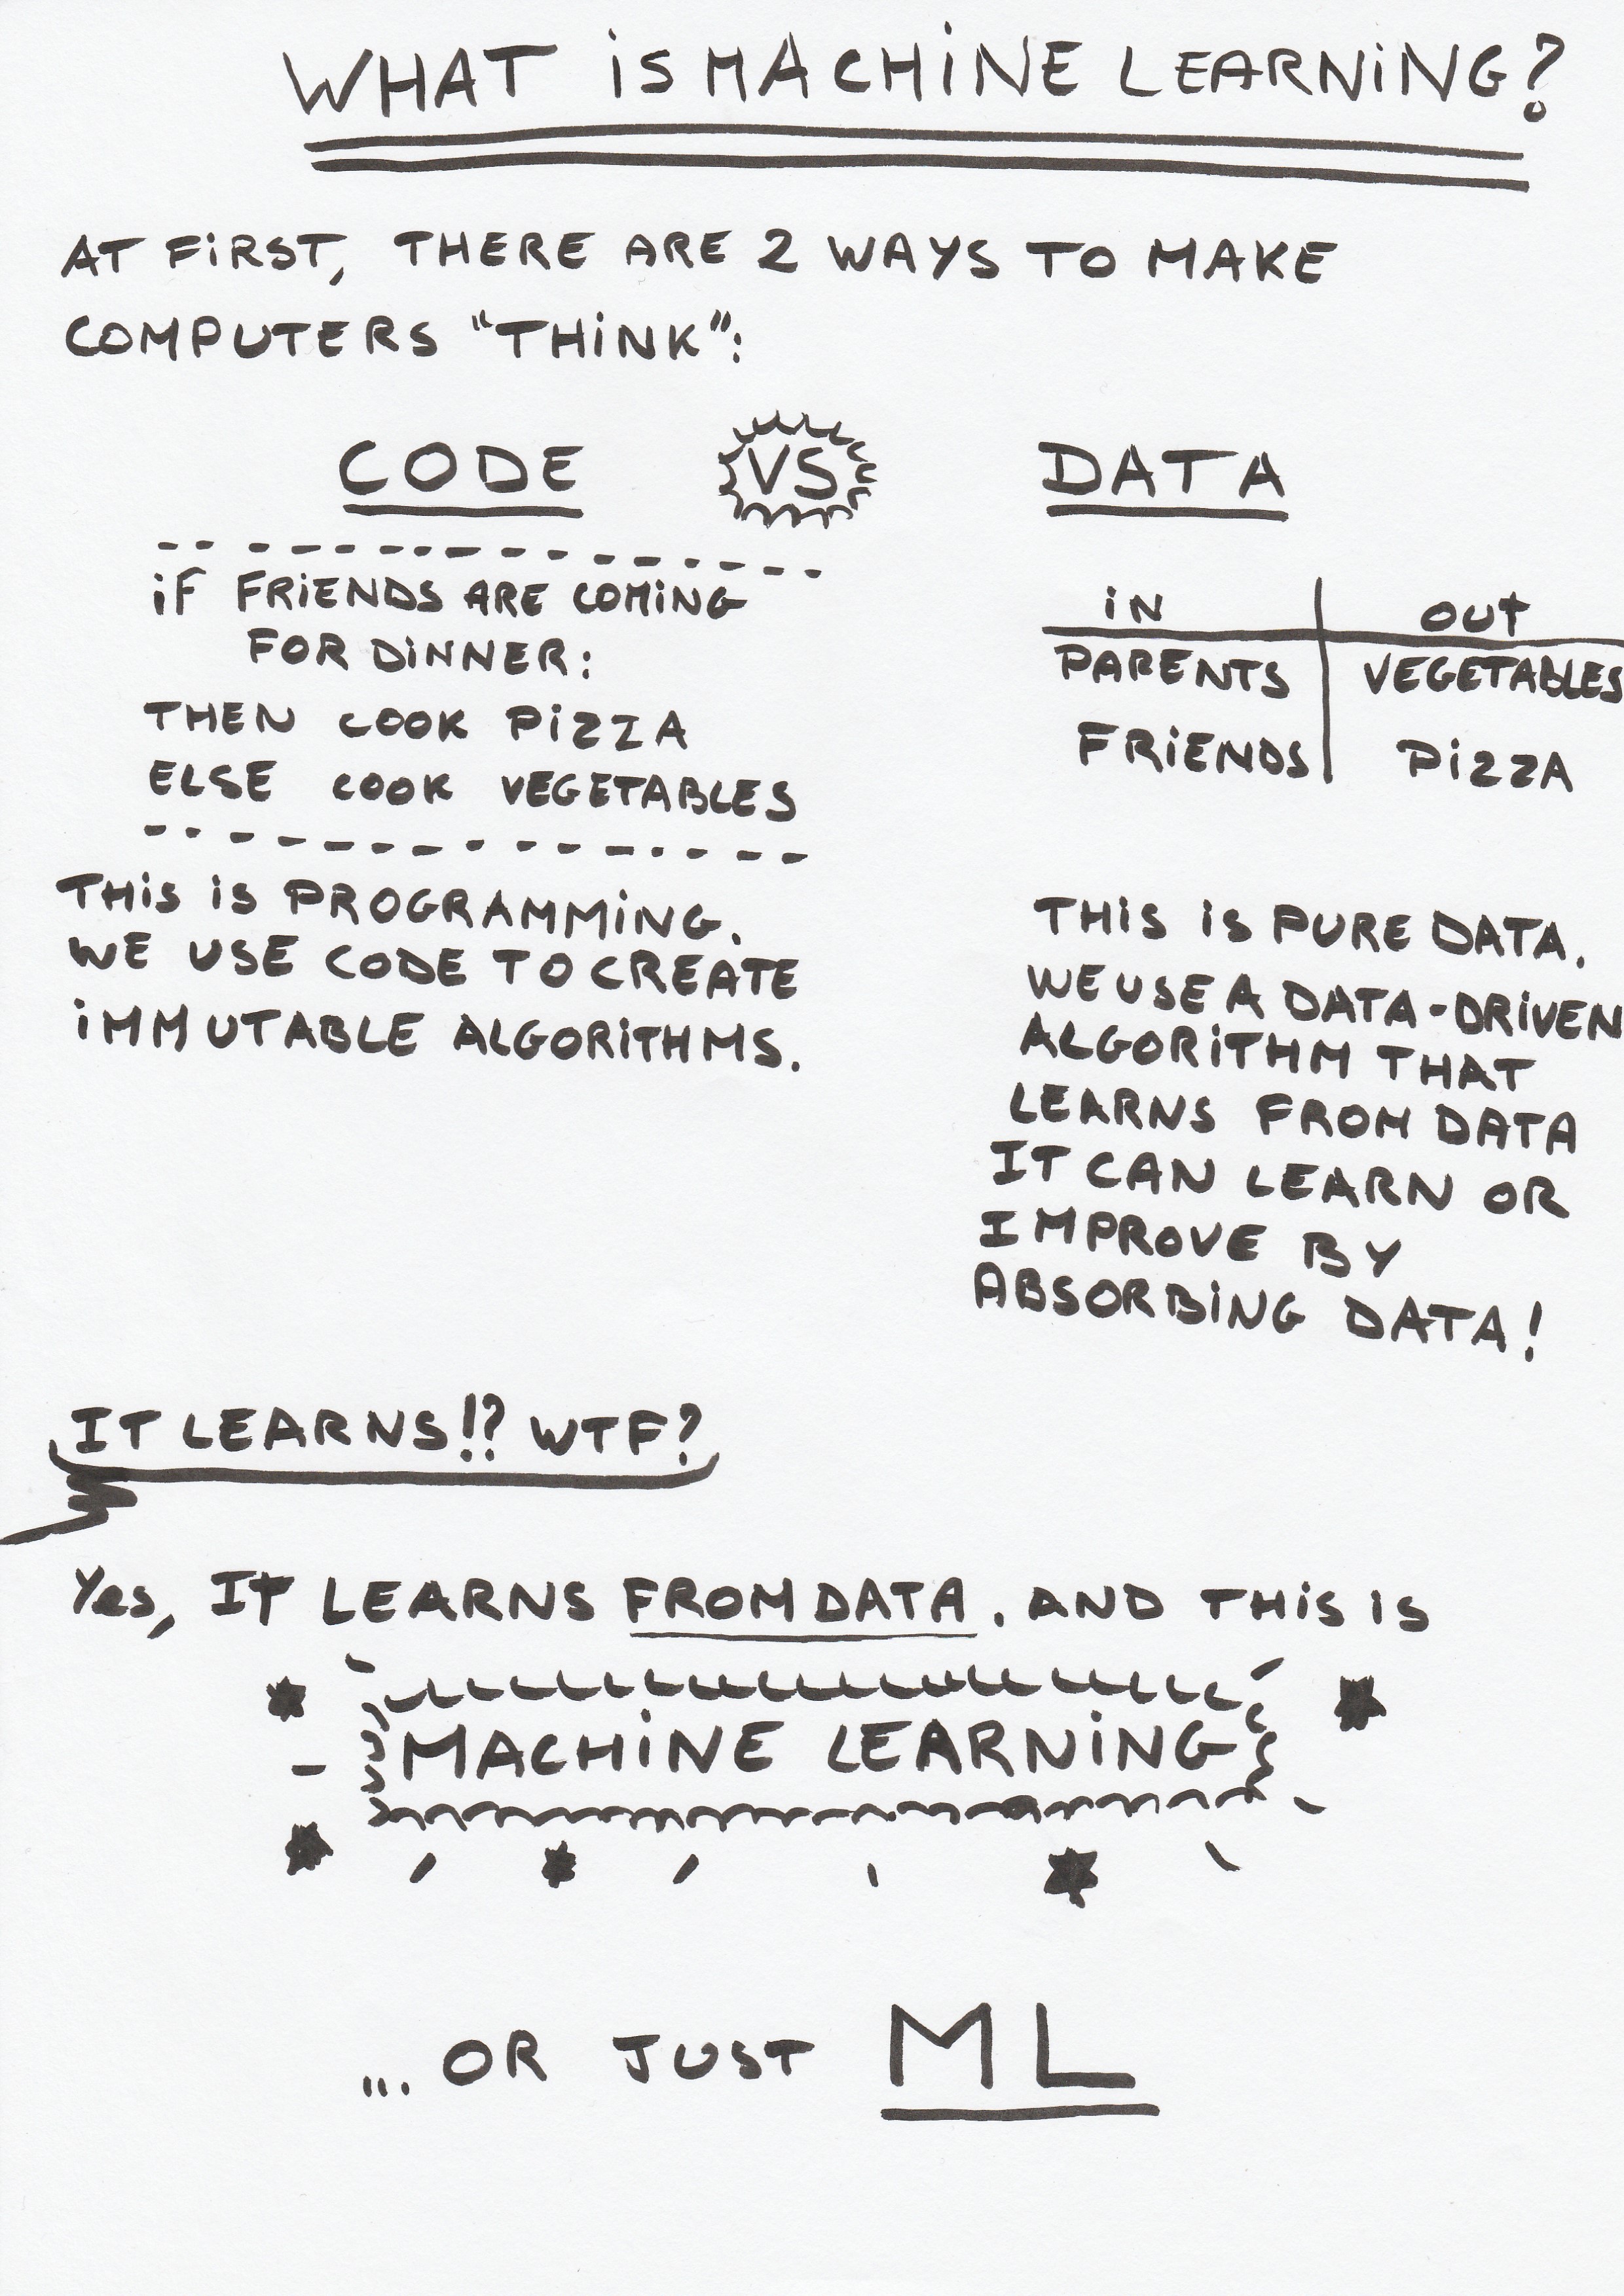 WHAT iS MACHiNE LEARNiNG?
AT FiRST, THERE ARE 2 WAYS TO MAKE
COMPUTERS "THiNK":
CODE VS DATA
iF FRiENDS ARE COMiNG
FOR DiNNER:
THEN COOK PiZZA
ELSE COOK VEGETABLES
THiS iS PROGRAMMiNG.
WE USE CODE TO CREATE
iMMUTABLE ALGORiTHMS.
iN OUT
PARENTS VEGETABLES
FRiENDS PiZZA
THiS iS PURE DATA.
WE USE A DATA-DRiVEN
ALGORiTHM THAT
LEARNS FROM DATA
IT CAN LEARN OR
IMPROVE BY
ABSORBiNG DATA!
IT LEARNS!? WTF?
Yes, IT LEARNS FROM DATA. AND THiS iS
MACHiNE LEARNiNG
... OR JUST ML